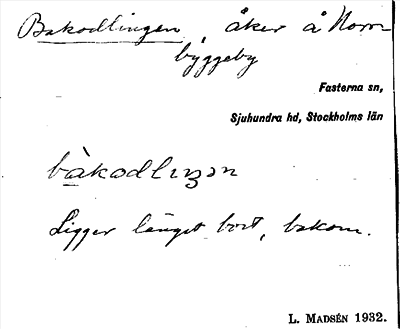 Bakodlingen, åker å Norr-
byggeby
Fasterna sn,
Sjuhundra hd, Stockholms län
bàkodlıŋən
Ligger länget bort, bakom.
L. MADSÉN 1932.